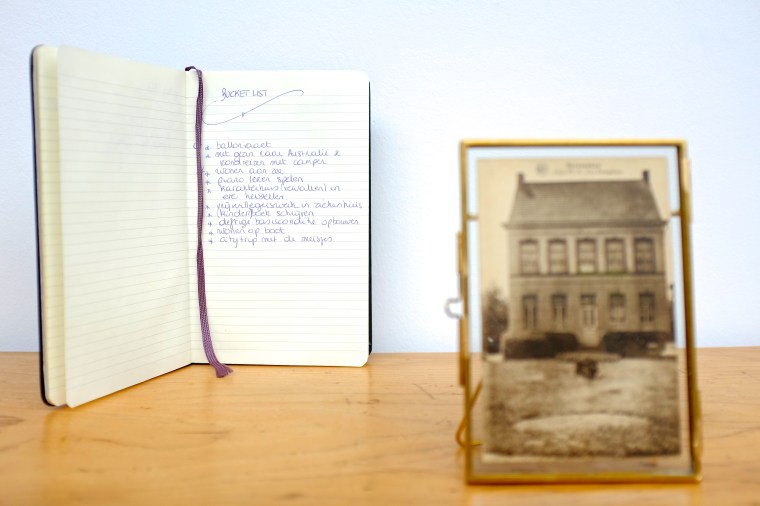 BUCKET LIST
* ballonvaart
* met gezin naar Australië &
rondreizen met camper
* wonen aan zee
* piano leren spelen
* karakterhuis (invallen) in
ere herstellen
* vrijwilligerswerk in ziekenhuis
* kinderboek schrijven
* deftige basisconditie opbouwen
* wonen op boot
* citytrip met de meisjes